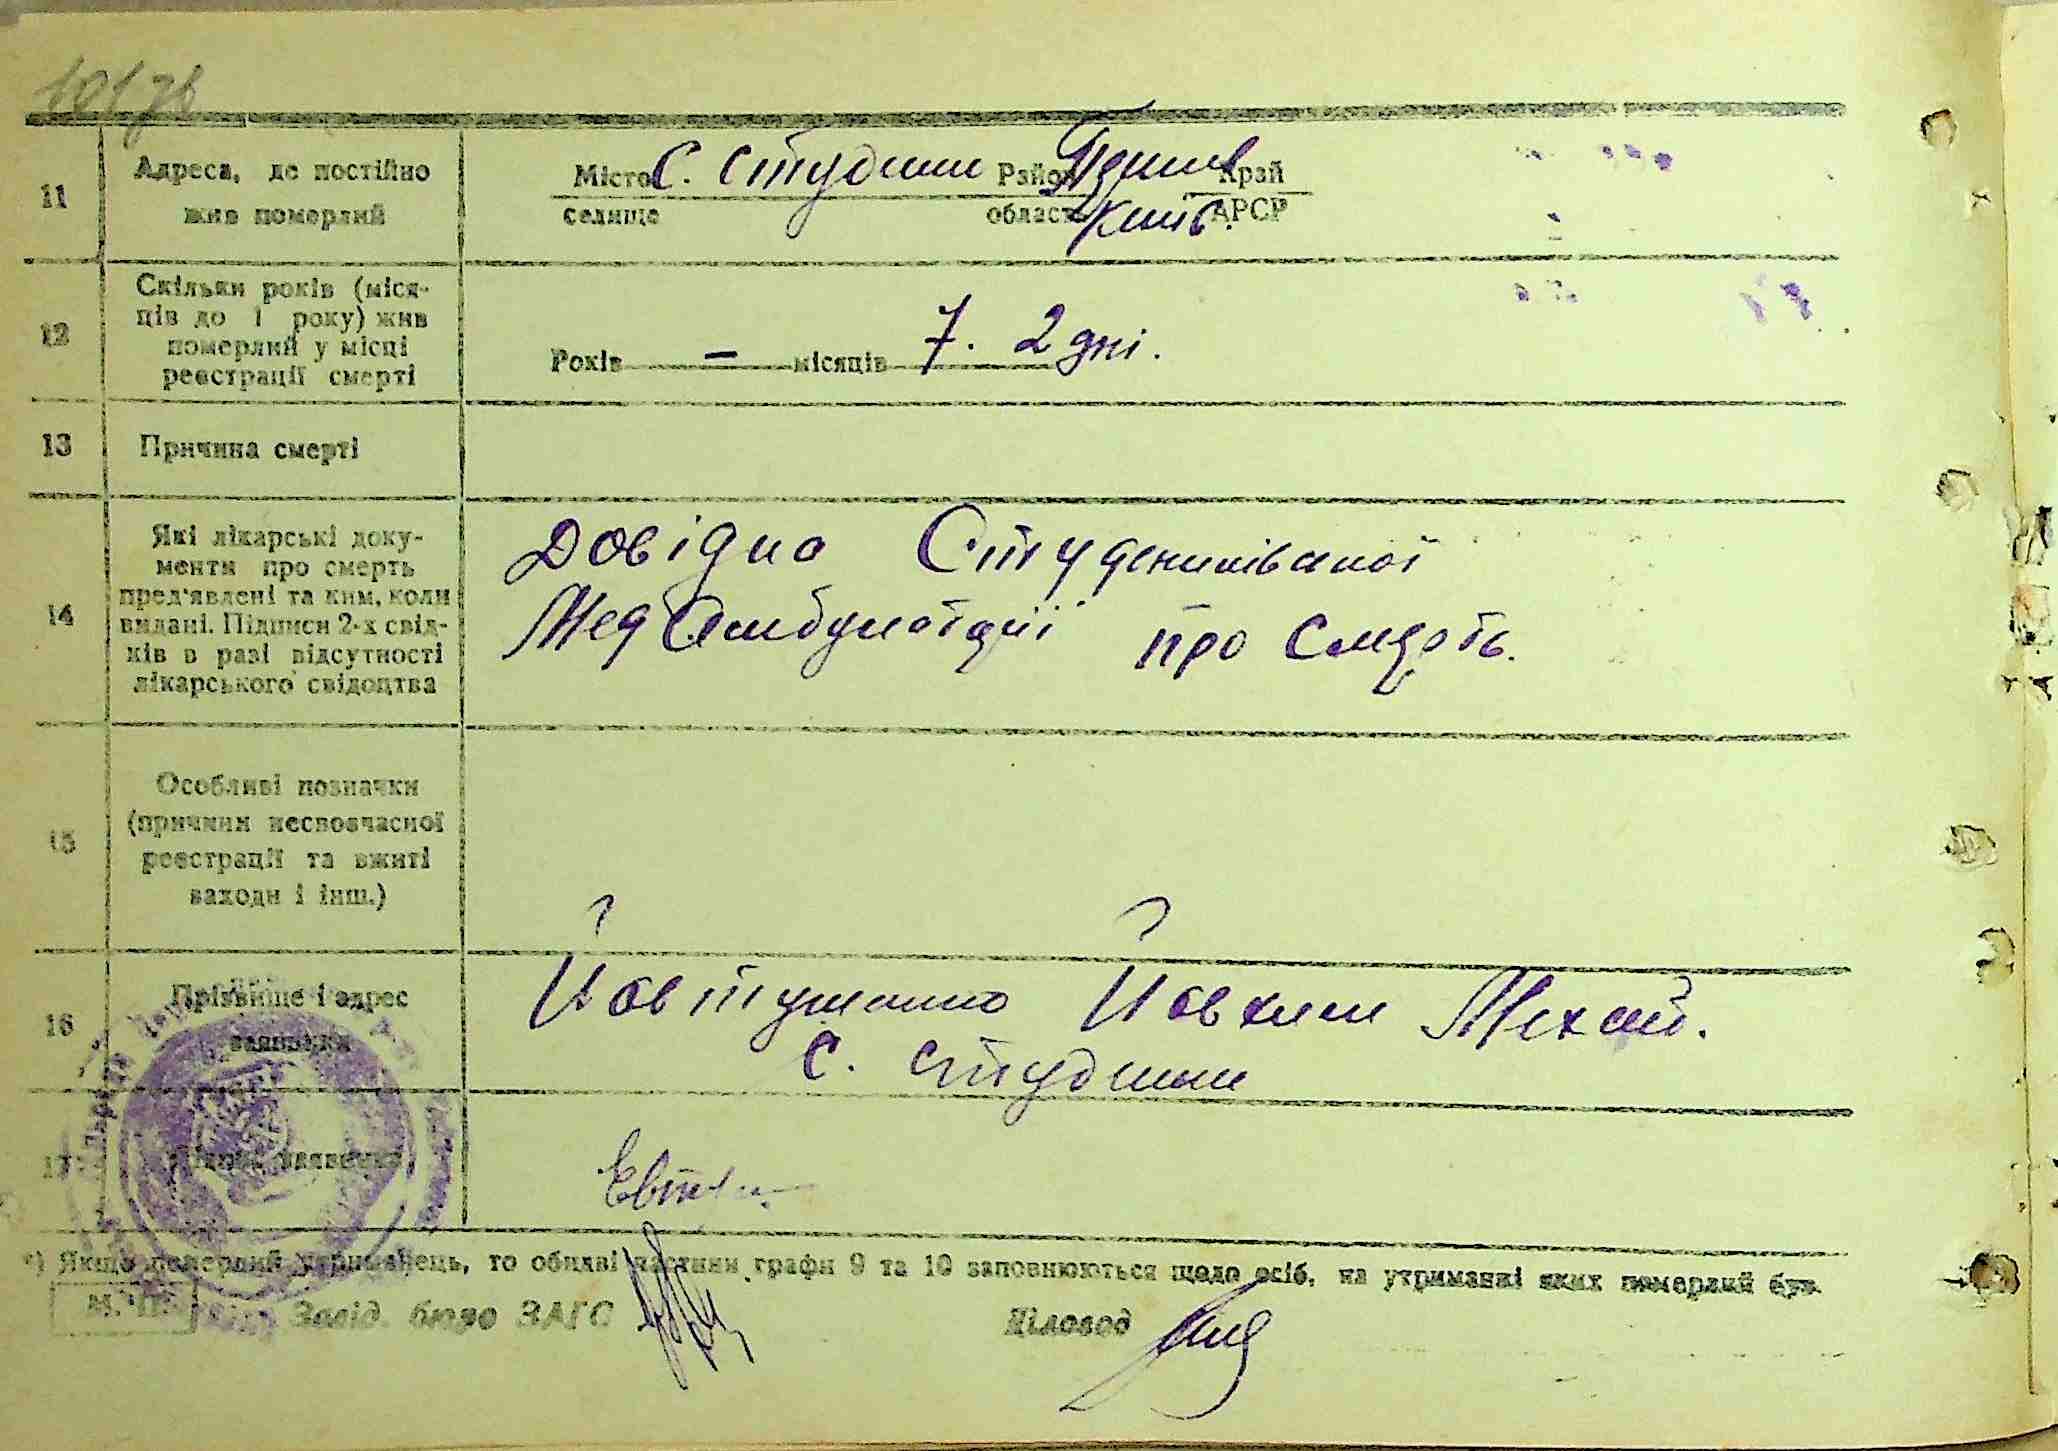 11
Адреса, де постійно
жив померлий
Місто
селище
С. Студини
Район
область
Київ.
Край
АРСР
12
Скільки років (міся-
ців до 1 року) жив
померлий у місці
реєстрації смерті
Років — місяців 7. 2 дні.
13
Причина смерті
14
Які лікарські доку-
менти про смерть
пред'явлені та ким, коли
видані. Підписи 2-х свід-
ків в разі відсутності
лікарського свідоцтва
Довідка
Мед Амбулаторії про смерть.
15
Особливі позначки
(причини несвоєчасної
реєстрації та вжиті
заходи і інш.)
16
Прізвище і адрес
заявника
Йовтушенко Йовхим Михай.
С. Студини
17
Підпис заявника
*) Якщо померлий утриманець, то обидві частини графи 9 та 10 заповнюються щодо осіб, на утриманні яких померлий був.
М. П.
Завід. бюро ЗАГС
Діловод